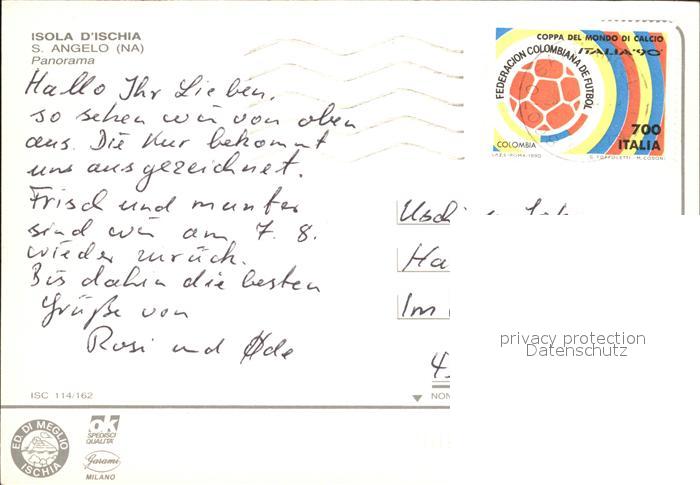 ISOLA D'ISCHIA
S. ANGELO (NA)
Panorama
Hallo Ihr Lieben,
so sehen wir von oben
aus. Die Kur bekommt
uns ausgezeichnet.
Frisch und munter
sind wir am 7. 8.
wieder zurück.
Bis dahin die besten
Grüße von
Rosi und
ISC 114/162
COPPA DEL MONDO DI CALCIO
ITALIA '90
FEDERACION COLOMBIANA DE FUTBOL
700
ITALIA
COLOMBIA
I.P.Z.S.-ROMA-1990
G. TOFFOLETTI - M. CODONI
Im
privacy protection
Datenschutz
NON
ED. DI MEGLIO
ISCHIA
ok
SPEDISCI
QUALITA'
Garami
MILANO